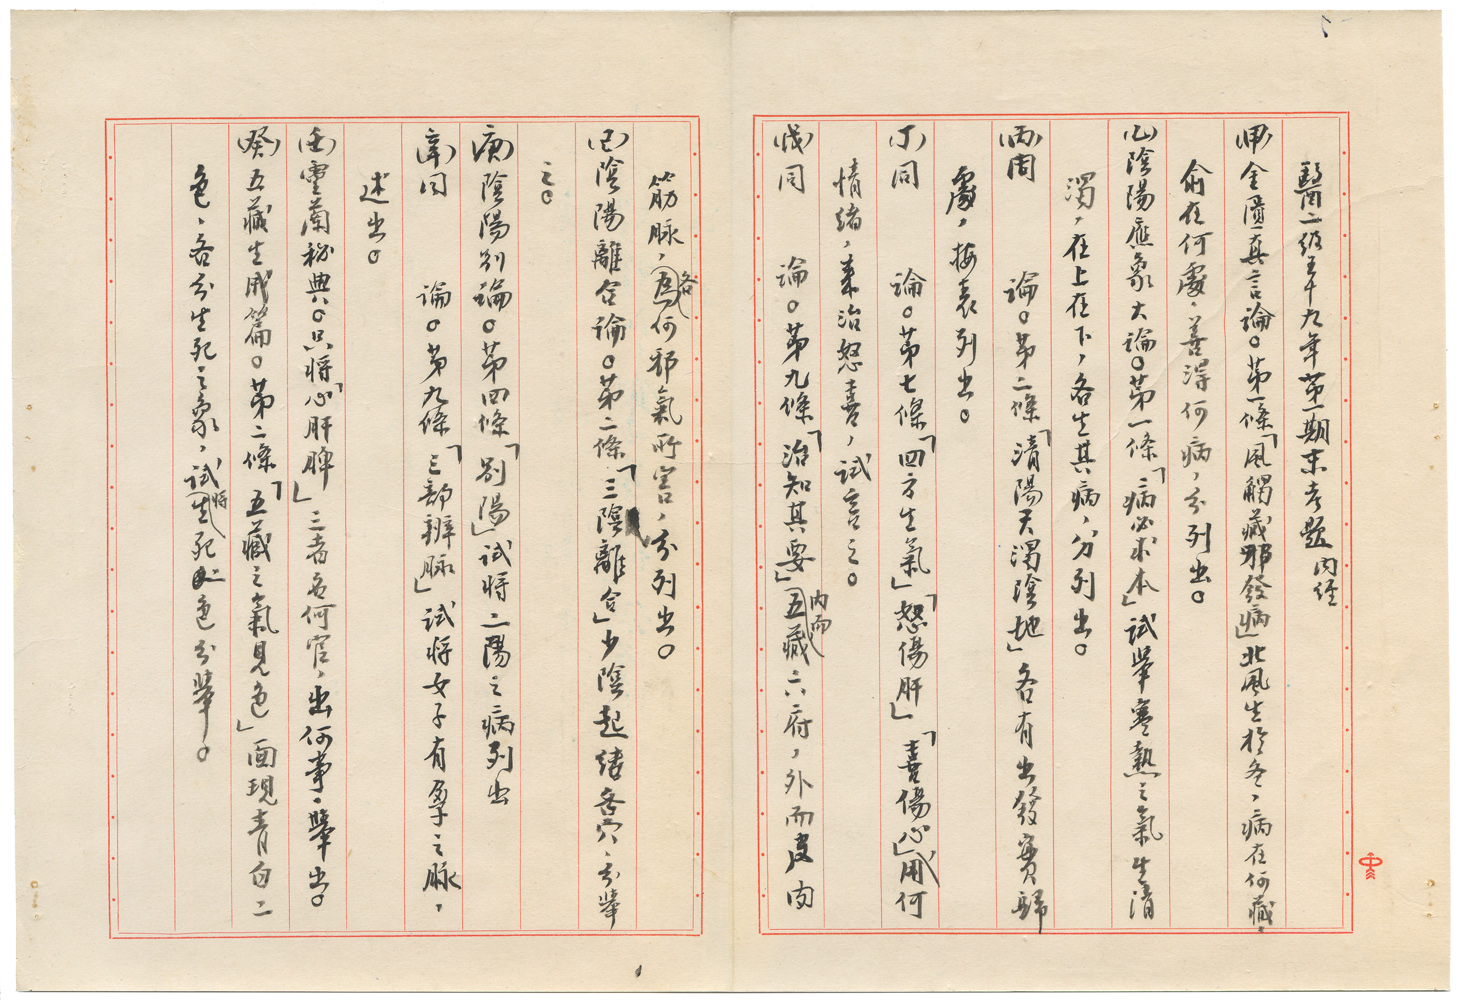 醫二級五十九年第一期末考題 內經
(甲)金匱真言論。第一條「風觸藏邪發病」北風生於冬，病在何藏，
俞在何處，善得何病，分列出。
(乙)陰陽應象大論。第一條「病必求本」試舉寒熱之氣生清
濁，在上在下，各生其病，分列出。
(丙)同 論。第二條「清陽天濁陰地」各有出發實歸
處，按表列出。
(丁)同 論。第七條「四方生氣」「怒傷肝」「喜傷心」用何
情緒，來治怒喜，試言之。
(戊)同 論。第九條「治知其要」內而五藏六府，外而皮肉
筋脉，各為何邪氣所害，分列出。
(己)陰陽離合論。第二條「三陰離合」少陰起緒各穴，分舉
之。
(庚)陰陽別論。第四條「別陽」試將二陽之病列出
(辛)同 論。第九條「三部辨脉」試將女子有孕之脉，
述出。
(壬)靈蘭秘典。只將「心肝脾」三者各何官，出何事，舉出。
(癸)五藏生成篇。第二條「五藏之氣見色」面現青白二
色，各分生死之象，試將生死之色分舉。